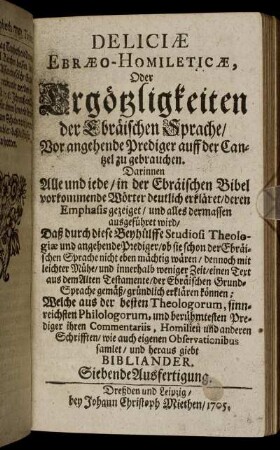 DELICIÆ
EBRÆO-HOMILETICÆ,
Oder
Ergötzligkeiten
der Ebräischen Sprache/
Vor angehende Prediger auff der Can-
zel zu gebrauchen.
Darinnen
Alle und iede/ in der Ebräischen Bibel
vorkommende Wörter deutlich erkläret/ deren
Emphasis gezeiget/ und alles dermassen
ausgeführet wird/
Daß durch diese Beyhülffe Studiosi Theolo-
giæ und angehende Prediger/ ob sie schon der Ebräi-
schen Sprache nicht eben mächtig wären/ dennoch mit
leichter Mühe/ und innerhalb weniger Zeit/ einen Text
aus dem Alten Testamente/ der Ebräischen Grund-
Sprache gemäß/ gründlich erklären können;
Welche aus der besten Theologorum, sinn-
reichsten Philologorum, und berühmtesten Pre-
diger ihren Commentariis, Homilien und anderen
Schrifften/ wie auch eigenen Observationibus
samlet/ und heraus giebt
BIBLIANDER.
Siebende Ausfertigung.
Dreßden und Leipzig/
bey Johann Christoph Miethen/ 1705.